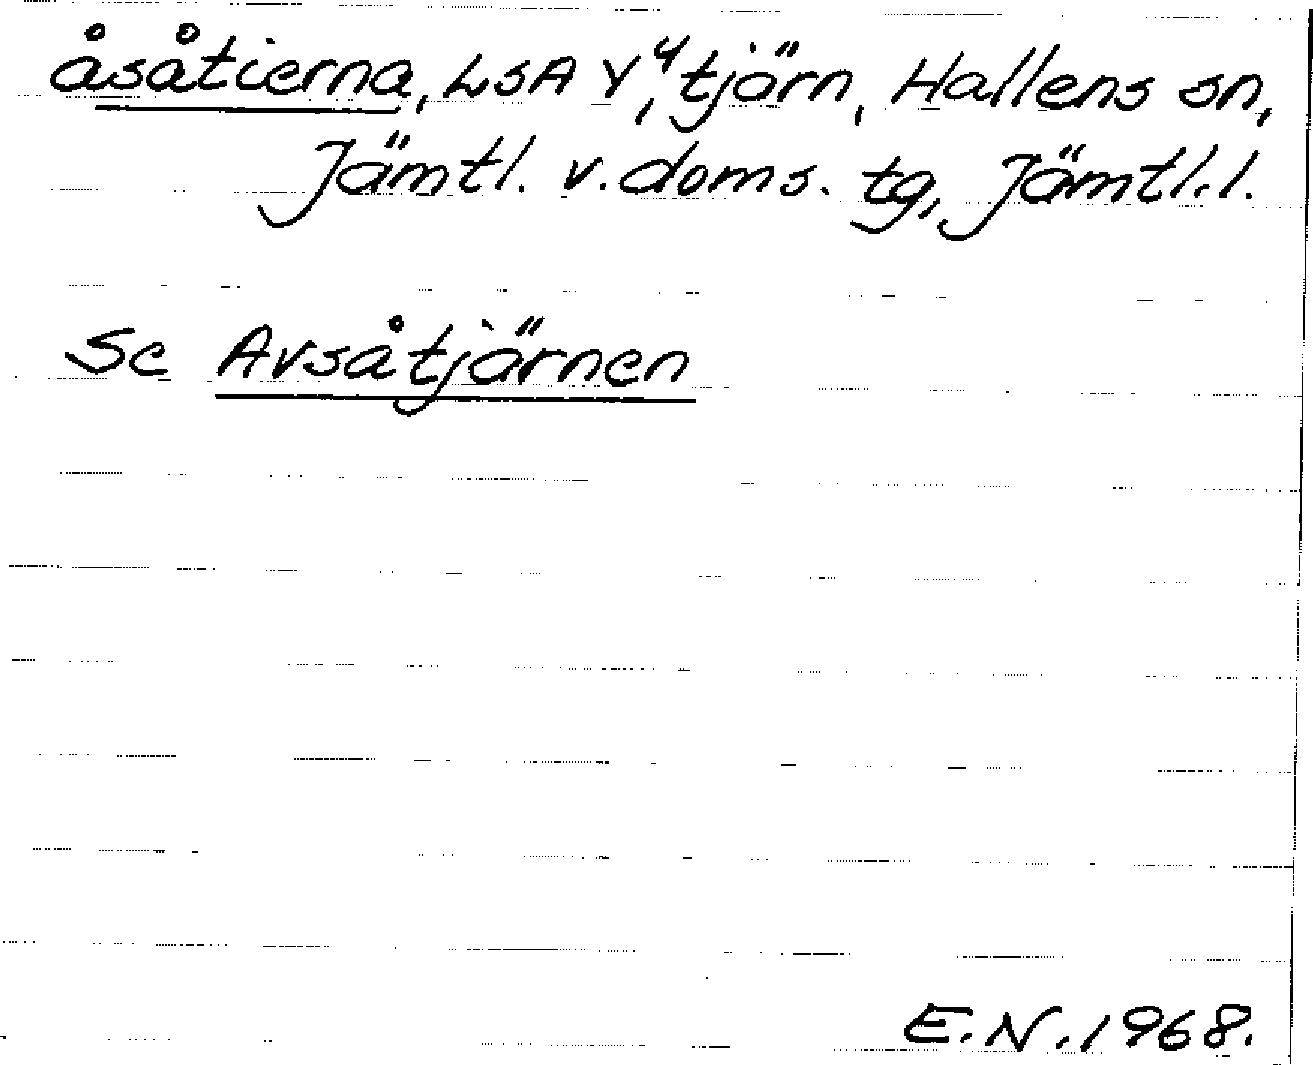 åsåtierna, LSA Y⁴, tjärn, Hallens sn,
Jämtl. v. doms. tg, Jämtl. l.
Se Avsåtjärnen
E.N. 1968.